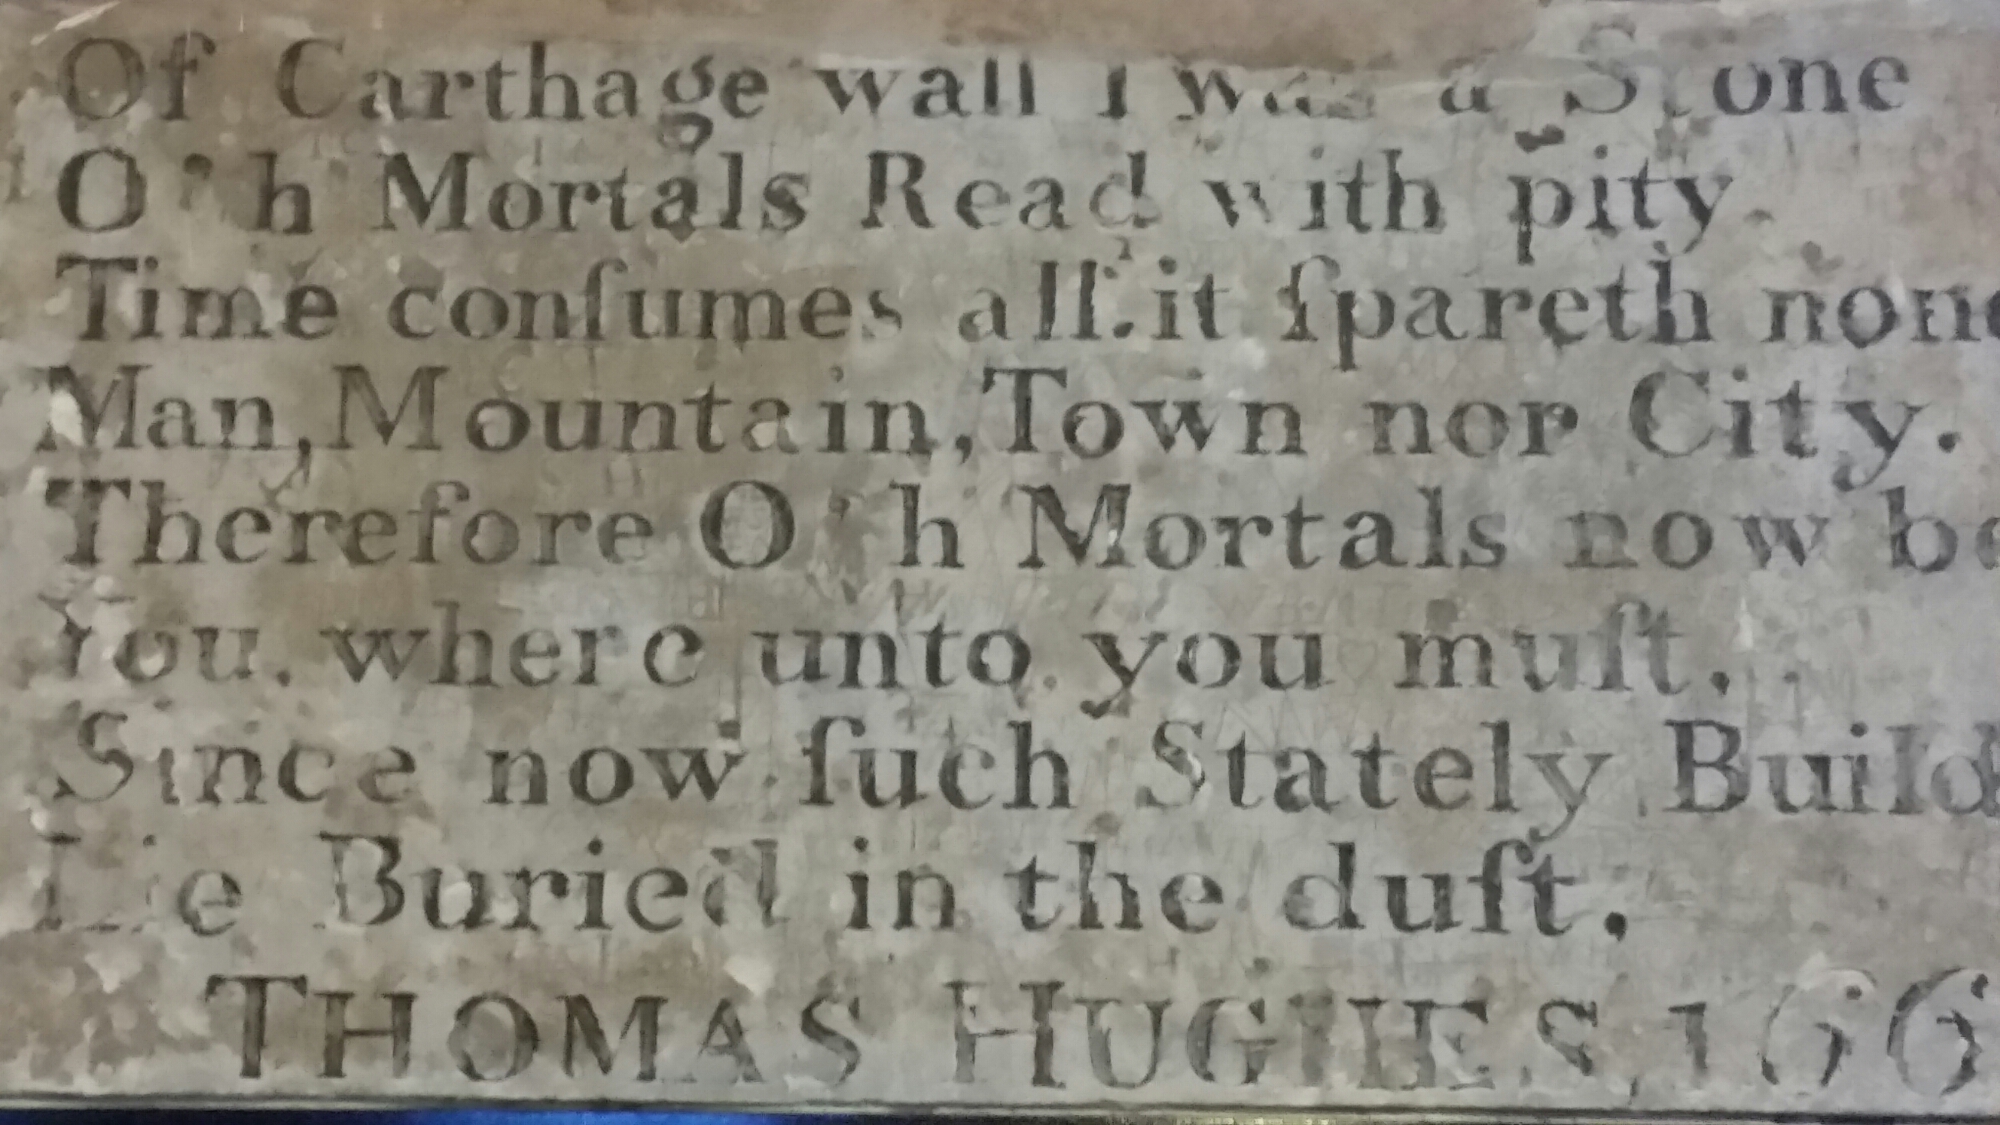 Of Carthage wall I was a Stone
O'h Mortals Read with pity.
Time conſumes all. it ſpareth none
Man, Mountain, Town nor City.
Therefore O'h Mortals now be
You. where unto you muſt.
Since now ſuch Stately Build
Lie Buried in the duſt.
THOMAS HUGHES, 166